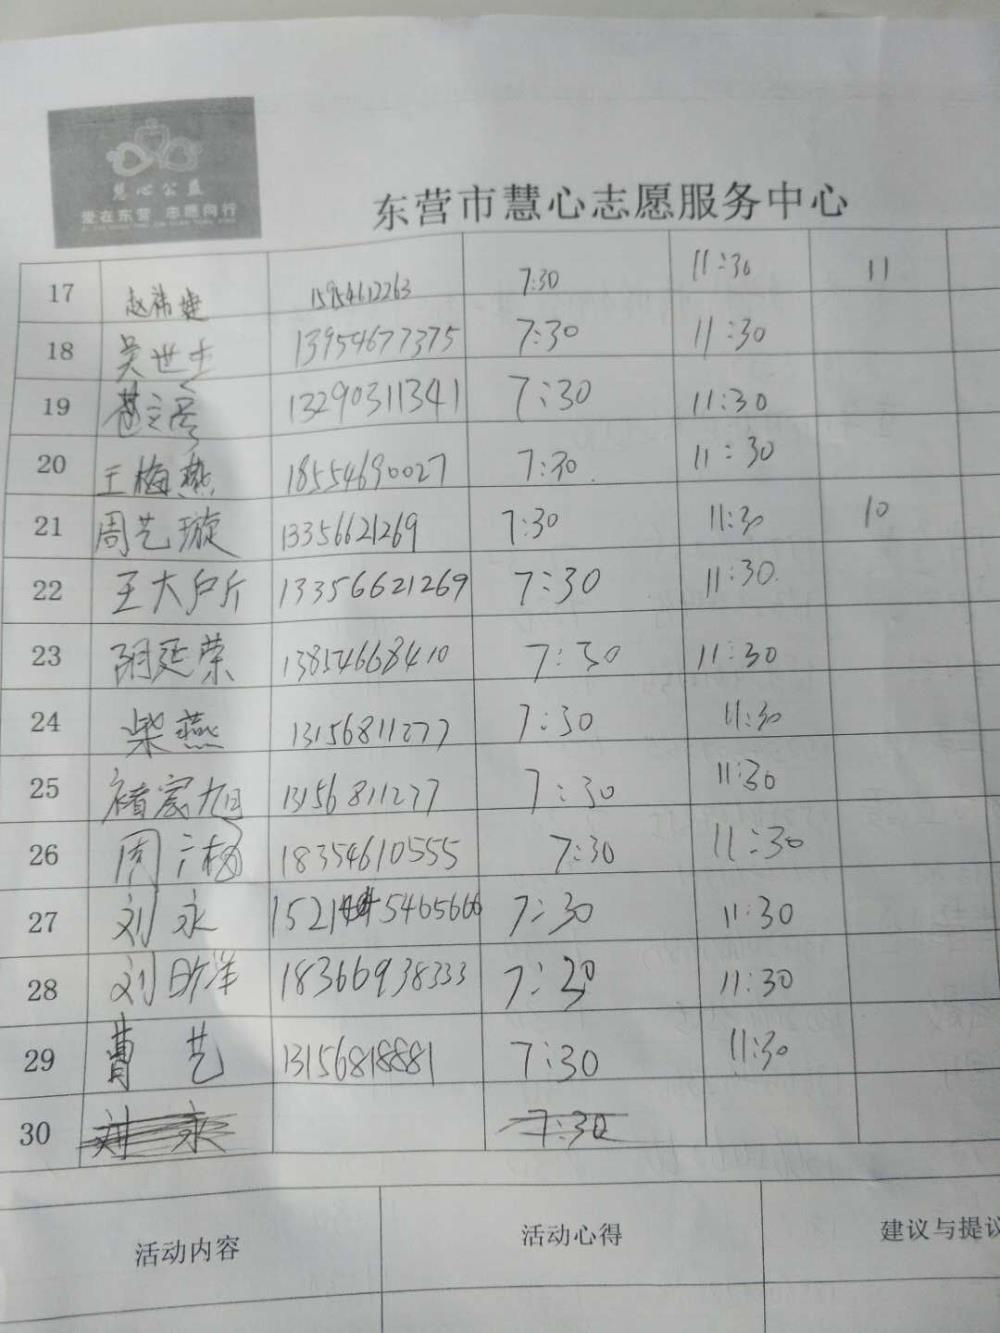 慧心公益
爱在东营 志愿同行
东营市慧心志愿服务中心
17 赵祎婕 15954612263 7:30 11:30 11
18 吴世杰 13954677375 7:30 11:30
19 13290311341 7:30 11:30
20 王梅燕 18554690027 7:30 11:30
21 周艺璇 13356621269 7:30 11:30 10
22 王大户斤 13356621269 7:30 11:30
23 阴延荣 13854668410 7:30 11:30
24 柴燕 13156811277 7:30 11:30
25 褚家旭 13156811277 7:30 11:30
26 周广梅 18354610555 7:30 11:30
27 刘永 1521 5465666 7:30 11:30
28 刘昕洋 18366938333 7:30 11:30
29 曹艺 13156818881 7:30 11:30
30 刘永 7:30
活动内容 活动心得 建议与提议